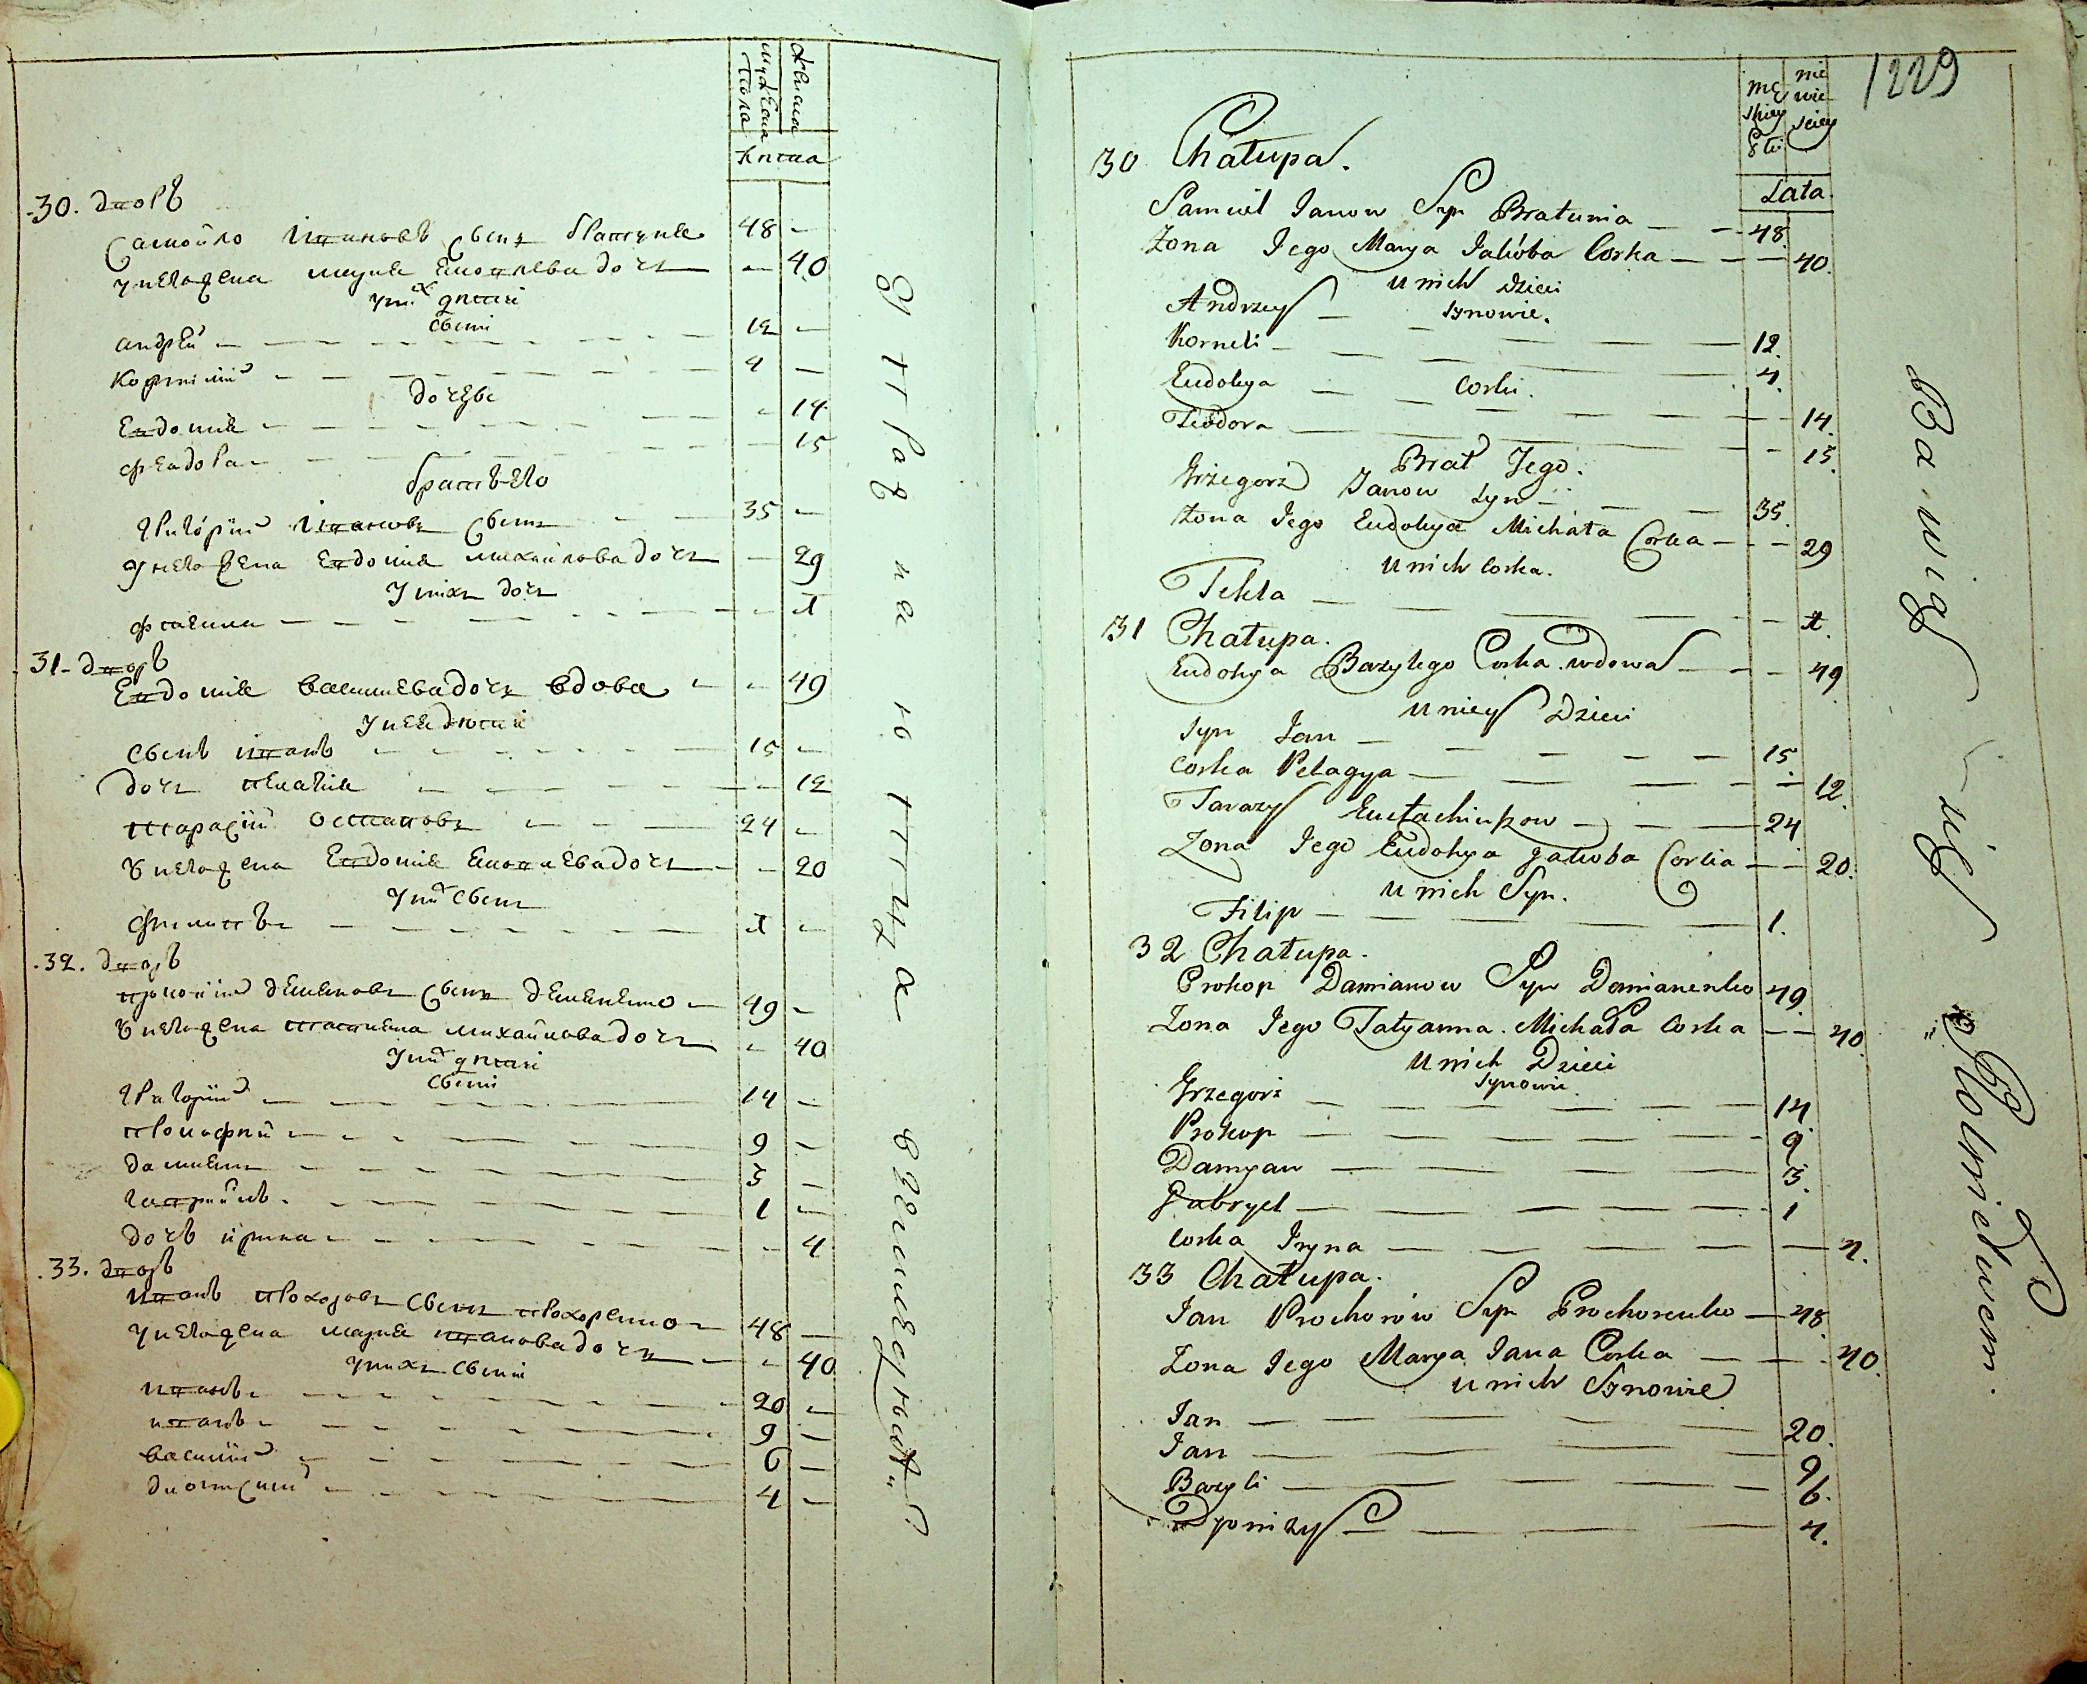 мужеска
пола
женска
лѣта
30. дворъ
Самойло Ивановъ сынъ Братуня 48 -
у него жена марія Яковлева дочь - 40
у них дѣти
сыны
андрей 12 -
корнилий 4 -
дочери
Евдокия - 14
феодора - 15
братъ его
Григорий Ивановъ сынъ 35 -
у него жена Евдокия михайлова дочь - 29
у нихъ дочь
фекила - 1
31. дворъ
Евдокия василиева дочь вдова - 49
у нея дѣти
сынъ иванъ 15 -
дочь пелагия - 12
тарасий остапов 24 -
у него жена Евдокия Яковлева дочь - 20
у них сынъ
филипъ 1 -
32. дворъ
прокопий демяновъ сынъ демяненко 49 -
у него жена татияна михайлова дочь - 40
у них дѣти
сыны
григорий 14 -
прокофий 9 -
дамиянъ 3 -
гаврийлъ 1 -
дочь ирина - 4
33. дворъ
иванъ прохоровъ сынъ прохоренко 48 -
у него жена мария иванова дочь - 40
у нихъ сыны
иванъ 20 -
иванъ 9 -
василий 6 -
дионисий 4 -
1229
mę
skiey
płci
nie
wie
sciey
Lata.
30 Chałupa.
Samuel Janow Syn Bratunia — 48.
Zona Jego Marya Jakóba Corka — 40.
u nich Dzieci
Synowie.
Andrzey — 12.
Korneli — 4.
Corki.
Eudokya — 14.
Teodora — 15.
Brat Jego.
Grzegorz Janow syn — 35.
Zona Jego Eudokya Michała Corka — 29
u nich Corka.
Tekla — 1.
31 Chałupa.
Eudokya Bazylego Corka wdowa — 49
u niey Dzieci
Syn Jan — 15
Corka Pelagya — 12.
Tarazy Eustachiuszow — 24
Zona Jego Eudokya Jakoba Corka — 20.
u nich Syn.
Filip — 1.
32 Chałupa.
Prokop Damianow Syn Demianenko 49.
Zona Jego Tatyanna Michała Corka — 40.
u nich Dzieci
Synowie.
Grzegorz — 14.
Prokop — 9.
Damyan — 3.
Gabryel — 1
Corka Iryna — 4.
33 Chałupa.
Jan Prochorów Syn Prochorenko — 48.
Zona Jego Marya Jana Corka — 40.
u nich Synowie
Jan — 20.
Jan — 9
Bazyli — 6.
Dyonizy — 4.